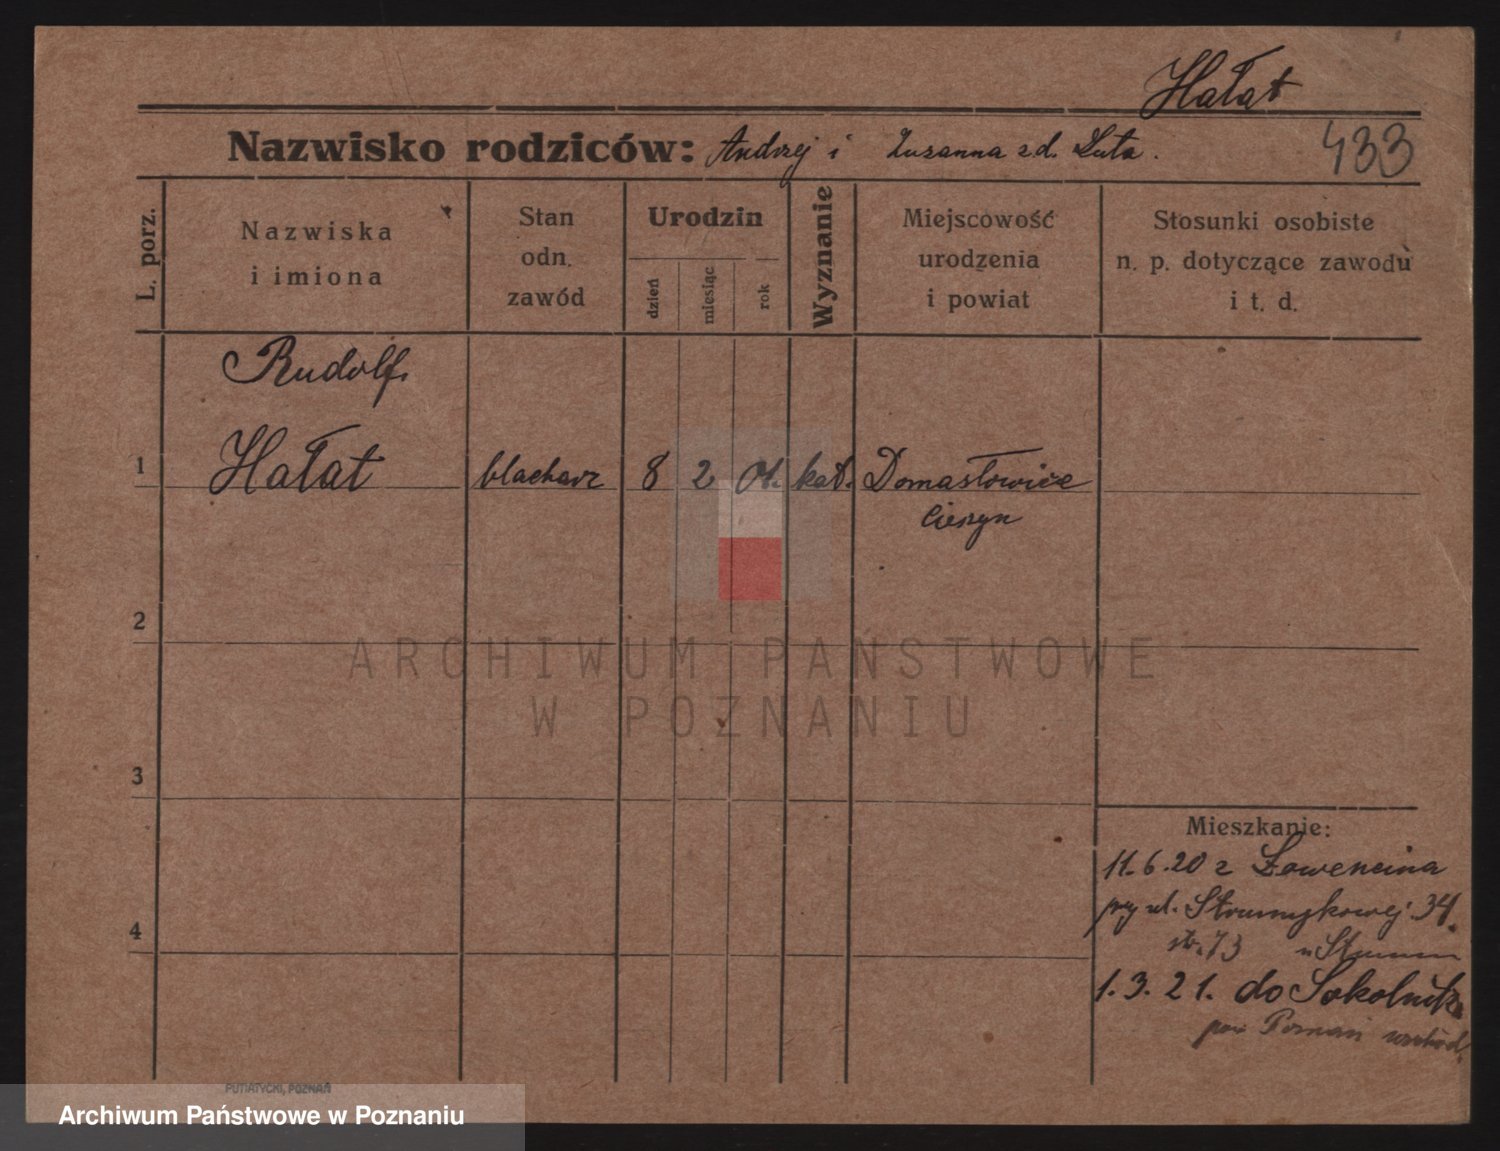 Hałat
Nazwisko rodziców: Andrzej i Zuzanna z d. Luta.
433
L. porz.
Nazwiska
i imiona
Stan
odn.
zawód
Urodzin
dzień
miesiąc
rok
Wyznanie
Miejscowość
urodzenia
i powiat
Stosunki osobiste
n. p. dotyczące zawodu
i t. d.
Rudolf
1 Hałat blacharz 8 2 01. kat. Domasłowice
Cieszyn
2
ARCHIWUM PAŃSTWOWE
W POZNANIU
3
Mieszkanie:
11.6.20 z Zowencina
przy ul. Strumykowej 34.
4
str. 73 u
1.3.21. do Sokolnik
pow Poznań wschód.
PUTIATYCKI, POZNAŃ
Archiwum Państwowe w Poznaniu